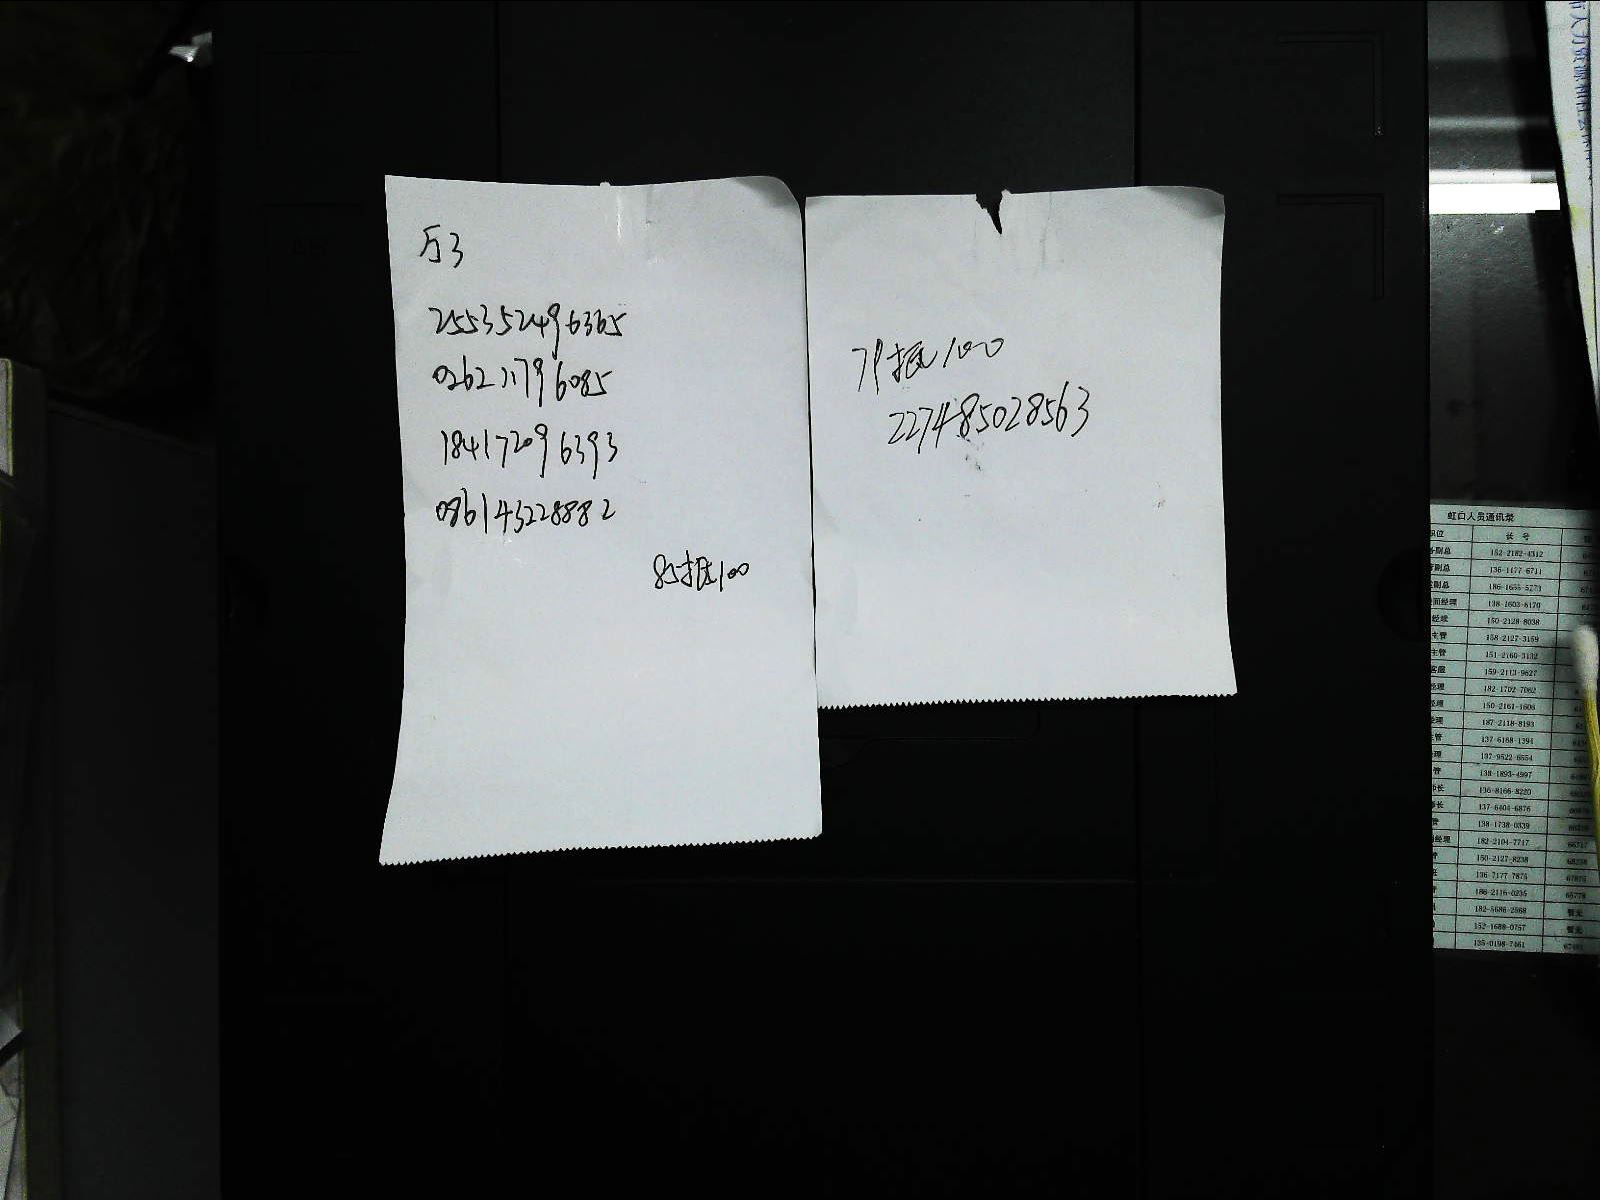 万3
255352496365
026211796085
184172096393
086143228882
85抵100
79抵100
227485028563
虹口人员通讯录
职位 长号
副总 152-2182-4312
副总 136-1177-6711
副总 186-1655-5773
经理 138-1603-6170
经理 150-2128-8038
主管 158-2127-3159
主管 151-2160-3132
客服 159-2113-9627
经理 182-1702-7062
经理 150-2161-1606
经理 187-2118-8193
主管 137-6168-1394
经理 137-9522-6554
管 138-1893-4997
长 136-8166-8220
长 137-6404-6876
管 138-1738-0339
经理 182-2104-7717 66717
150-2127-8238 68238
136-7177-7875 67875
186-2116-0235 65778
182-5686-2568 暂无
152-1688-0757 暂无
135-0198-7461 67461